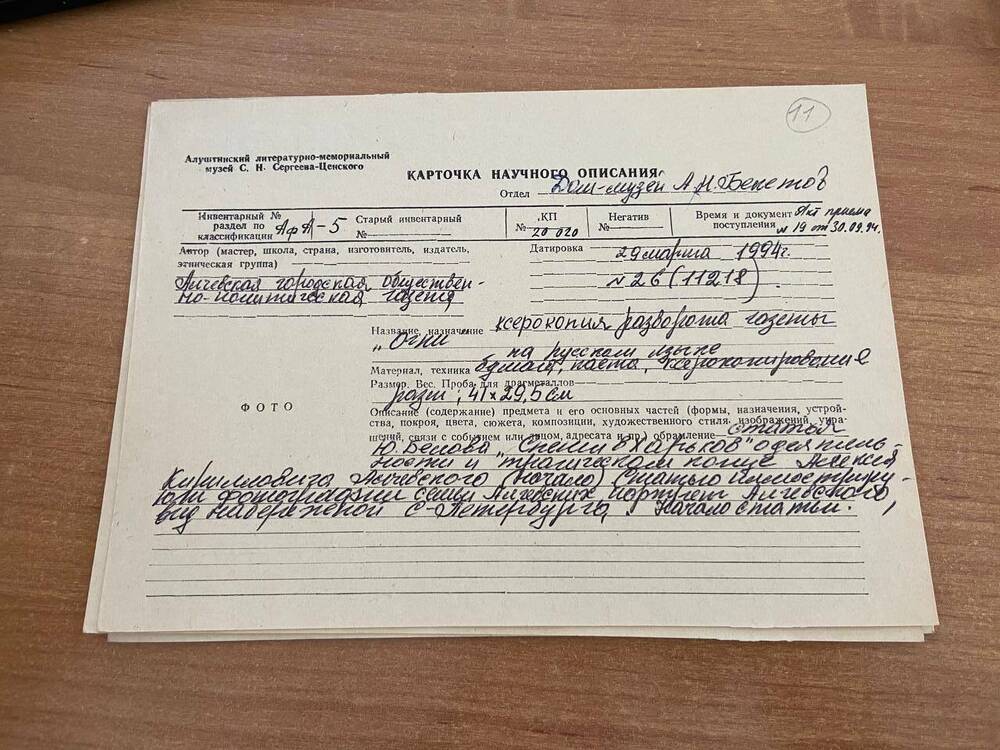 11
Алуштинский литературно-мемориальный
музей С. Н. Сергеева-Ценского
КАРТОЧКА НАУЧНОГО ОПИСАНИЯ
Отдел Дом-музей А.Н.Бекетова
Инвентарный №
раздел по
классификации АфА-5
Старый инвентарный
№
КП
№ 20 020
Негатив
№
Время и документ Акт приема
поступления № 19 от 30.09.94.
Автор (мастер, школа, страна, изготовитель, издатель,
этническая группа)
Алчевская городская обществен-
но-политическая газета
Датировка 29 марта 1994г.
№ 26 (11218).
Название, назначение ксерокопия разворота газеты
„Огни"
на русском языке
Материал, техника бумага, паста, ксерокопирование
Размер. Вес. Проба для драгметаллов
разм; 41 × 29,5 см
ФОТО
Описание (содержание) предмета и его основных частей (формы, назначения, устрой-
ства, покроя, цвета, сюжета, композиции, художественного стиля, изображений, укра-
шений, связи с событием или лицом, адресата и пр.) обрамление статья
Ю. Белова „Спеши в Харьков" о деятель-
ности и трагическом конце Алексея
Кирилловича Алчевского (начало) Статью иллюстриру-
ют фотографии семьи Алчевских портрет Алчевского,
вид набережной С-Петербурга, Начало статьи.